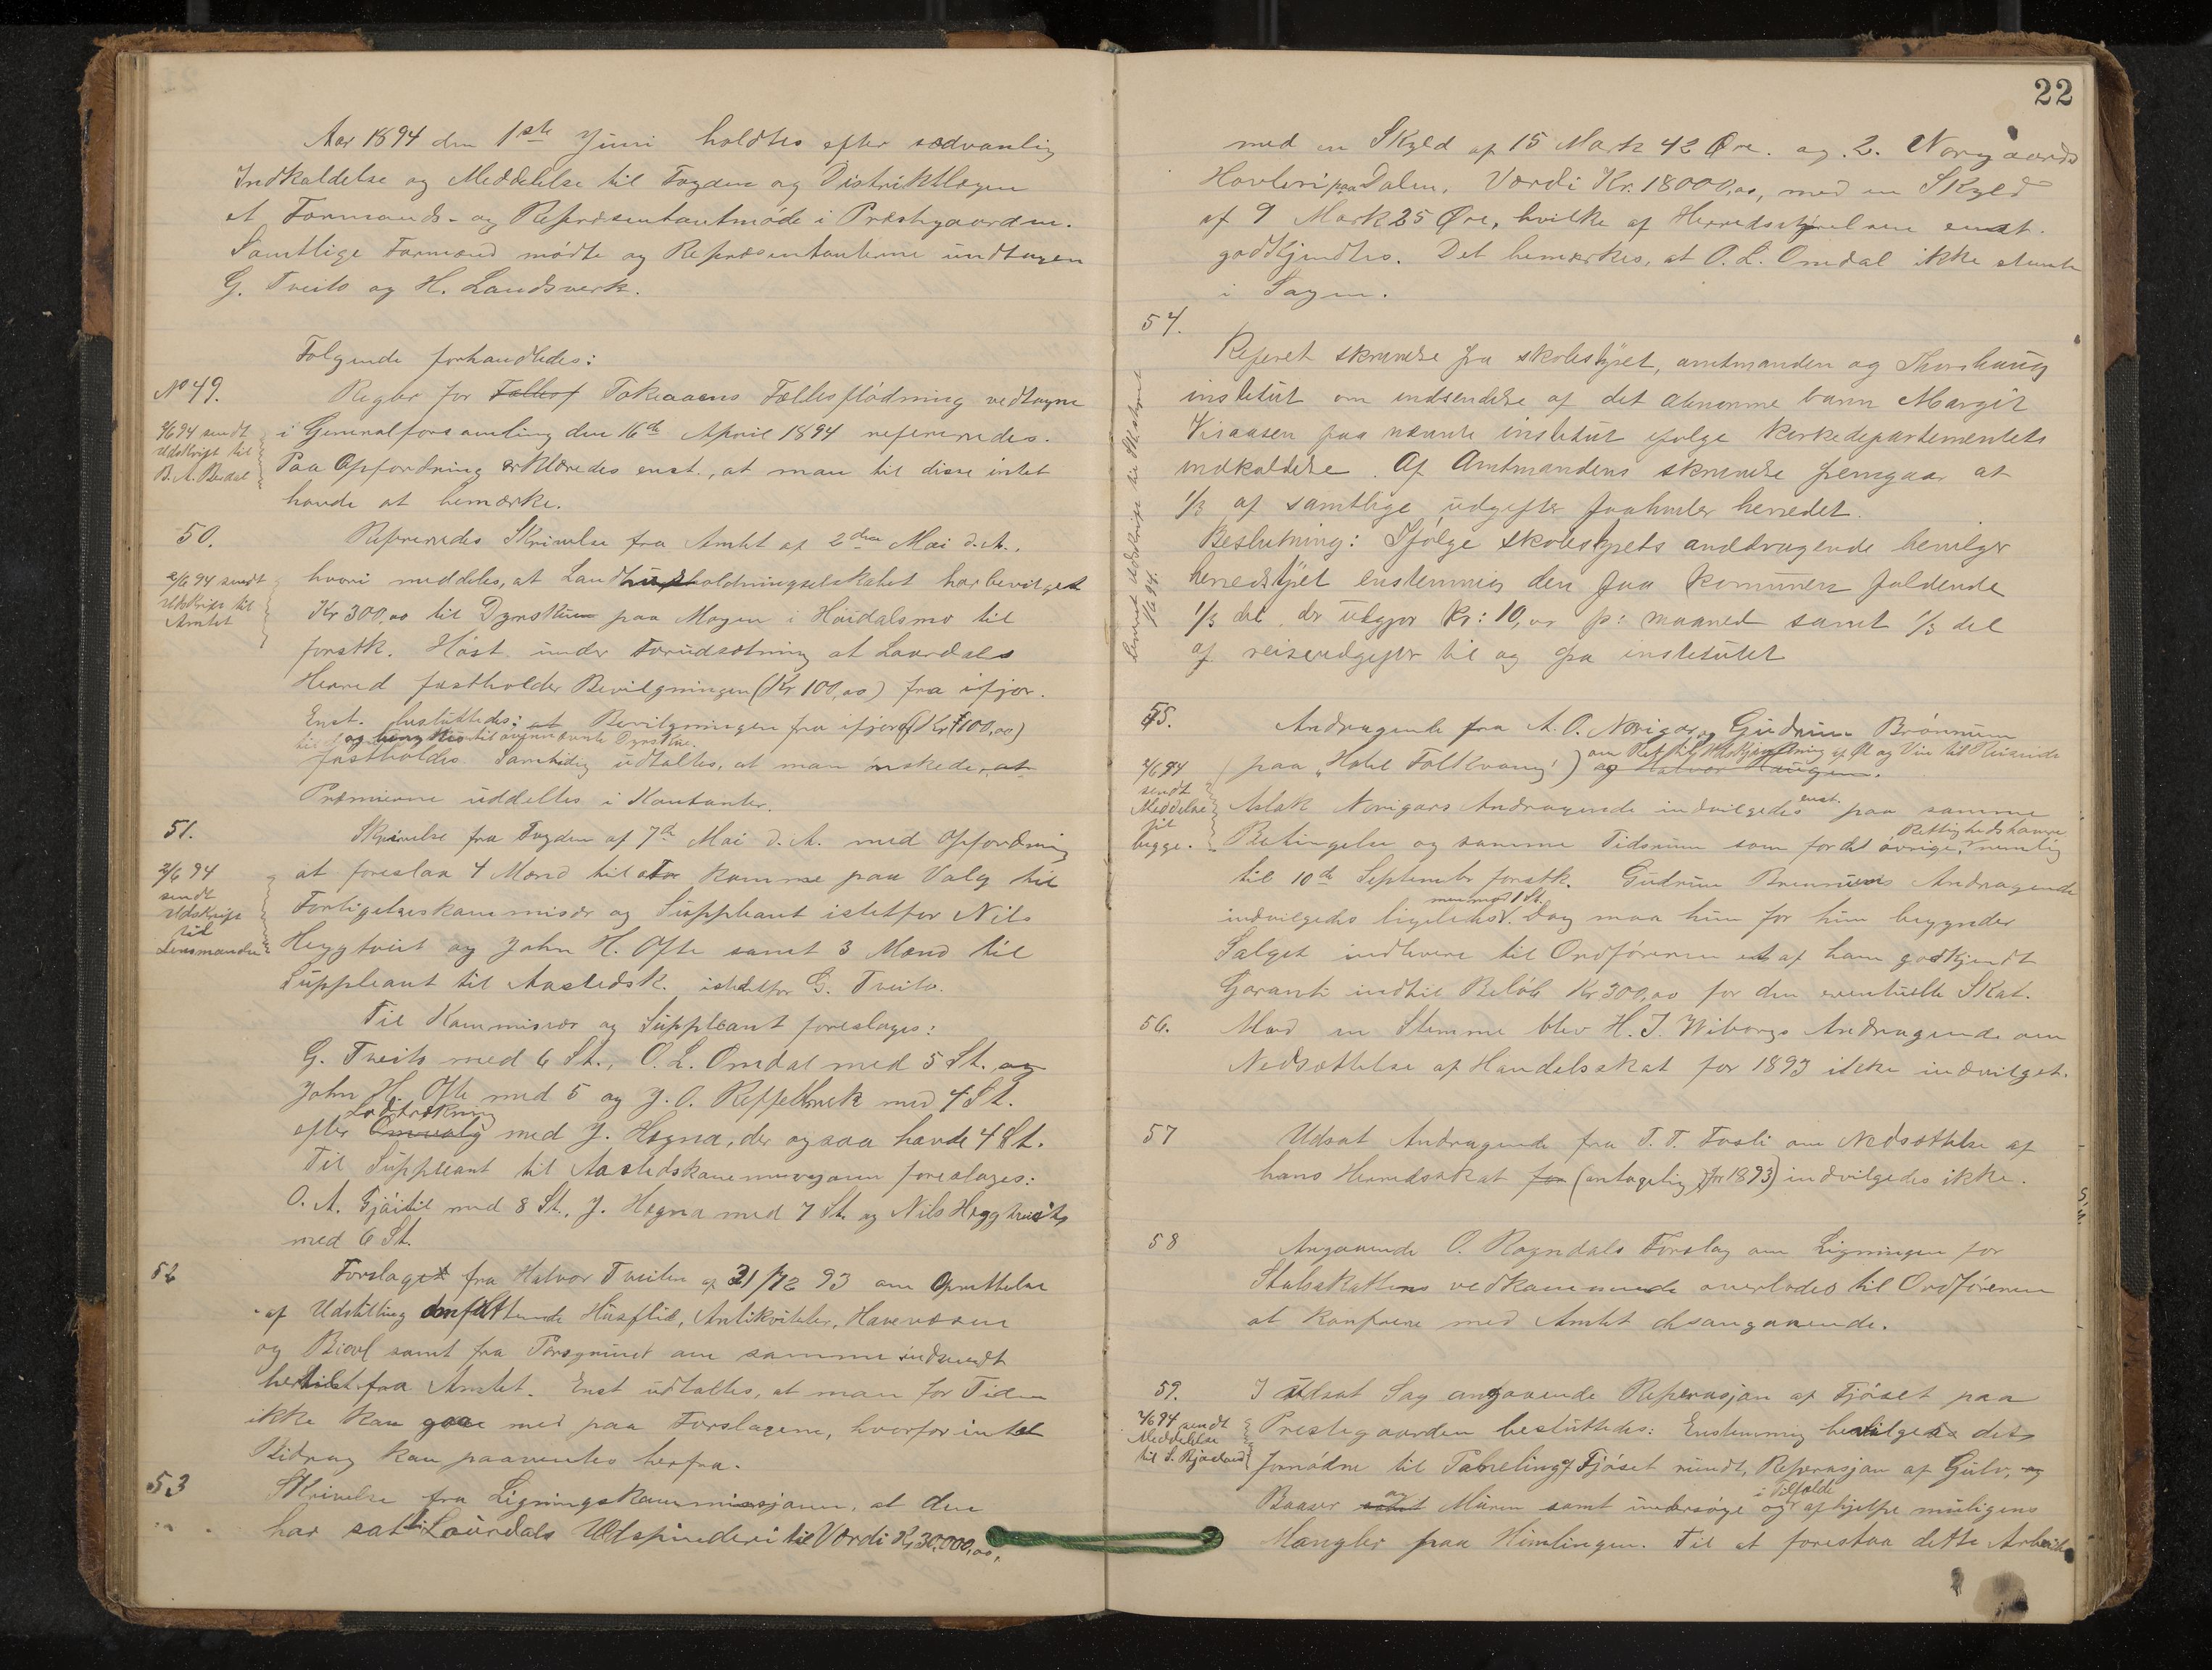 Aar 1894 den 1ste Juni holdtes efter sædvanlig
Indkaldelse og Meddelelse til Fogden og Distriktlægen
et Formands- og Repræsentantmøde i Præstgaarden.
Samtlige Formænd mødte og Repræsentanterne undtagen
G. Tveito og H. Landsverk.
Følgende forhandledes:
No 49.
Regler for Fællesf Tokeaaens Fællesflødning vedtagne
i Generalforsamling den 16de April 1894 refereredes.
Paa Opfordring erklæredes enst., at man til disse intet
havde at bemærke.
2/6 94 sendt
Udskrift til
B. A. Berdal
50.
Refereredes Skrivelse fra Amtet af 2den Mai d. A.,
hvori meddeles, at Landhusholdningselskabet har bevilget
Kr 300,00 til Dyrskue paa Mogen i Høidalsmo til
forstk. Høst under Forudsætning at Laardals
Herred fastholder Bevilgningen (Kr 100,00) fra ifjor.
Enst. besluttedes: at Bevilgningen fra ifjor (Kr 100,00)
og til Dyrskue.
fastholdes. Samtidig udtaltes, at man ønskede, at
Præmierne uddeltes i Kontanter.
2/6 94 sendt
Udskrift til
Amtet
51.
Skrivelse fra Fogden af 7de Mai d. A. med Opfordring
at foreslaa 4 Mænd til at komme paa Valg til
Forligelseskommisær og Suppleant istetfor Nils
Heggtveit og John H. Ofte samt 3 Mænd til
Suppleant til Aastedsk. istedetfor G. Tveito.
2/6 94
sendt
Udskrift
til
Lensmanden
Til Kommissær og Suppleant foreslages:
G. Tveito med 6 St., O. L. Omdal med 5 St. og
John H. Ofte med 5 og J. O. med 4 St.
Lodtrækning
efter Omvalg med J. Hegna, der ogsaa havde 4 St.
Til Suppleant til Aastedskommissjonen foreslages:
O. A. Gjøitil med 8 St., J. Hegna med 7 St. og Nils Heggtveit
med 6 St.
52
Forslaget fra Halvor Tveiten af 31/12 93 om Oprettelse
af Udstilling omfattende Husflid, Antikviteter, Havevæsen
og Biavl samt fra Porsgrund om samme indsendt
hertil fra Amtet. Enst udtaltes, at man for Tiden
ikke kan gaa med paa Forslagene, hvorfor intet
Bidrag kan paaventes herfra.
53
Skrivelse fra Ligningskommissjonen, at den
har sat Laurdals Uldspinderi til Værdi Kr 30.000,00,
22
med en Skyld af 15 Mark 42 Øre. og 2. Norgaards
Høvleri paa Dalen. Værdi Kr. 18000,00, med en Skyld
af 9 Mark 25 Øre, hvilke af Herredsstyrelsen enst.
godkjendtes. Det bemærkes, at O. L. Omdal ikke stemte
i Sagen.
54.
Referet skrivelse fra skolestyret, amtmanden og Thorshaug
institut om indsendelse af det abnorme barn Margit
Visaasen paa nævnte institut ifølge kirkedepartementets
indkaldelse. Af Amtmandens skrivelse fremgaar at
1/3 af samtlige udgifter paahviler herredet.
Beslutning: Ifølge skolestyrets anddragende bevilger
herredstyret enstemmig den paa kommunen faldende
1/3 del, der udgjør kr: 10,00 pr: maaned samt 1/3 del
af reiseudgifter til og fra institutet
55.
Andragende fra A. O. Norigar og Gudrun Brønnum
om Ret til Udskjænkning af Øl og Vin til Reisende
paa „Hotel Folkvang") og Halvor Haugen.
Aslak Norigars Andragende indvilgedes enst. paa samme
Betingelser og samme Tidsrum som for det øvrige, Rettighedshavere nemlig
til 10de September forstk. Gudrun Brennums Andragende
men mod 1 St.
indvilgedes ligeledes. Dog maa hun før hun begynder
Salget indlevere til Ordføreren et af ham godkjendt
Garanti indtil Beløb Kr 300,00 for den eventuelle Skat.
2/6 94
sendt
Meddelse
til
begge.
56.
Mod en Stemme blev H. J. Wiborgs Andragende om
Nedsættelse af Handelsskat for 1893 ikke indvilget.
57
Udsat Andragende fra T. T. Fosli om Nedsættelse af
hans Herredsskat for (antagelig for 1893) indvilgedes ikke.
58
Angaaende O. Rogndals Forslag om Ligningen for
Statsskattens vedkommende overlodes til Ordføreren
at konferere med Amtet desangaaende.
59.
I Udsat Sag angaaende Reperasjon af Fjøset paa
Prestegaarden besluttedes: Enstemmig bevilgedes det
fornødne til Fjøset rundt, Reperasjon af Gulv, og
Baaser samt og Muren samt undersøge og i Tilfælde afhjelpe muligens
Mangler paa Himlingen. Til at forestaa dette Arbeide
2/6 94 sendt
Meddelelse